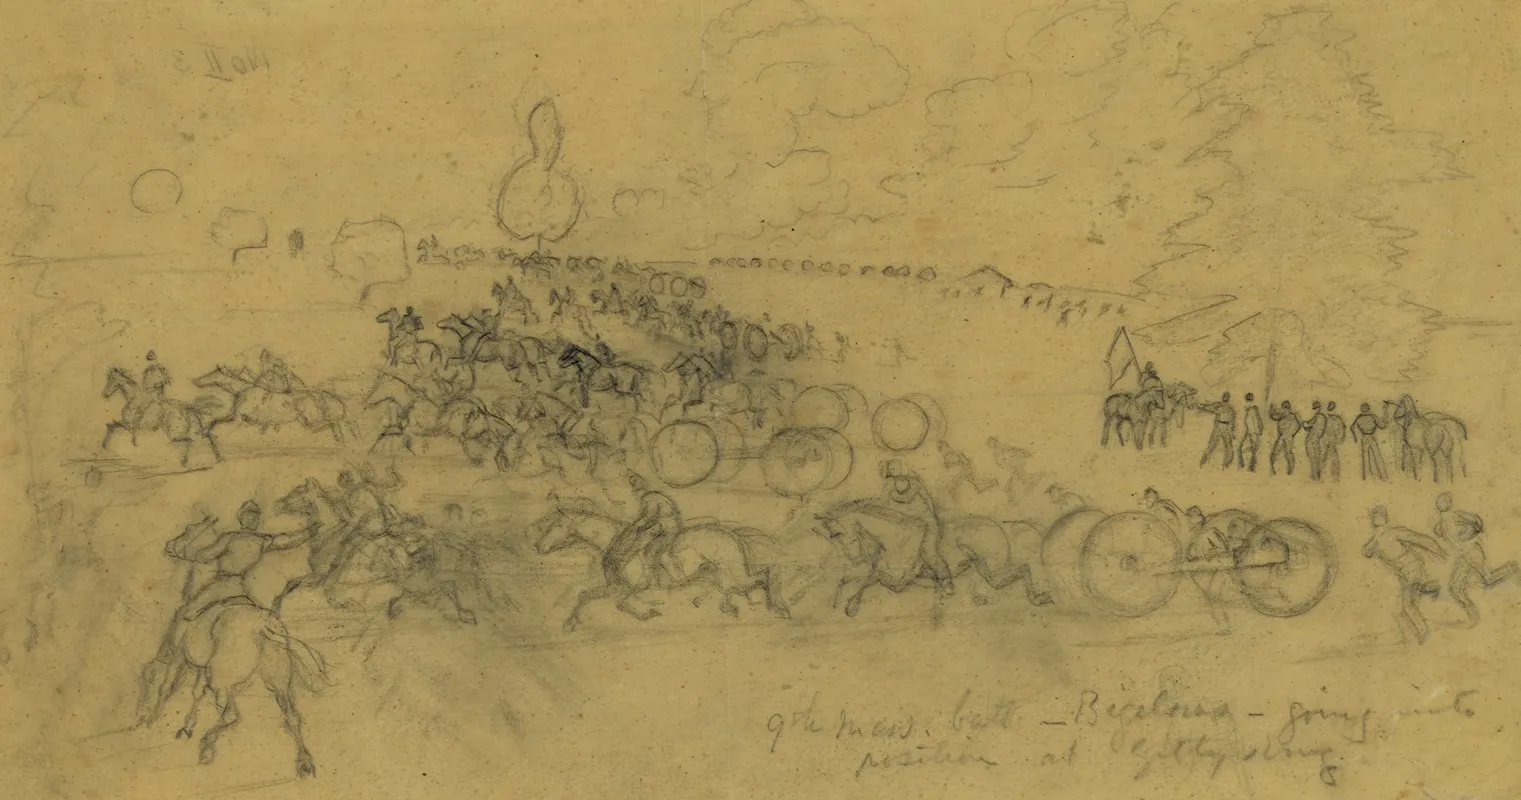 No II 3
9th Mass. batt - Bigelows - going into
position at Gettysburg